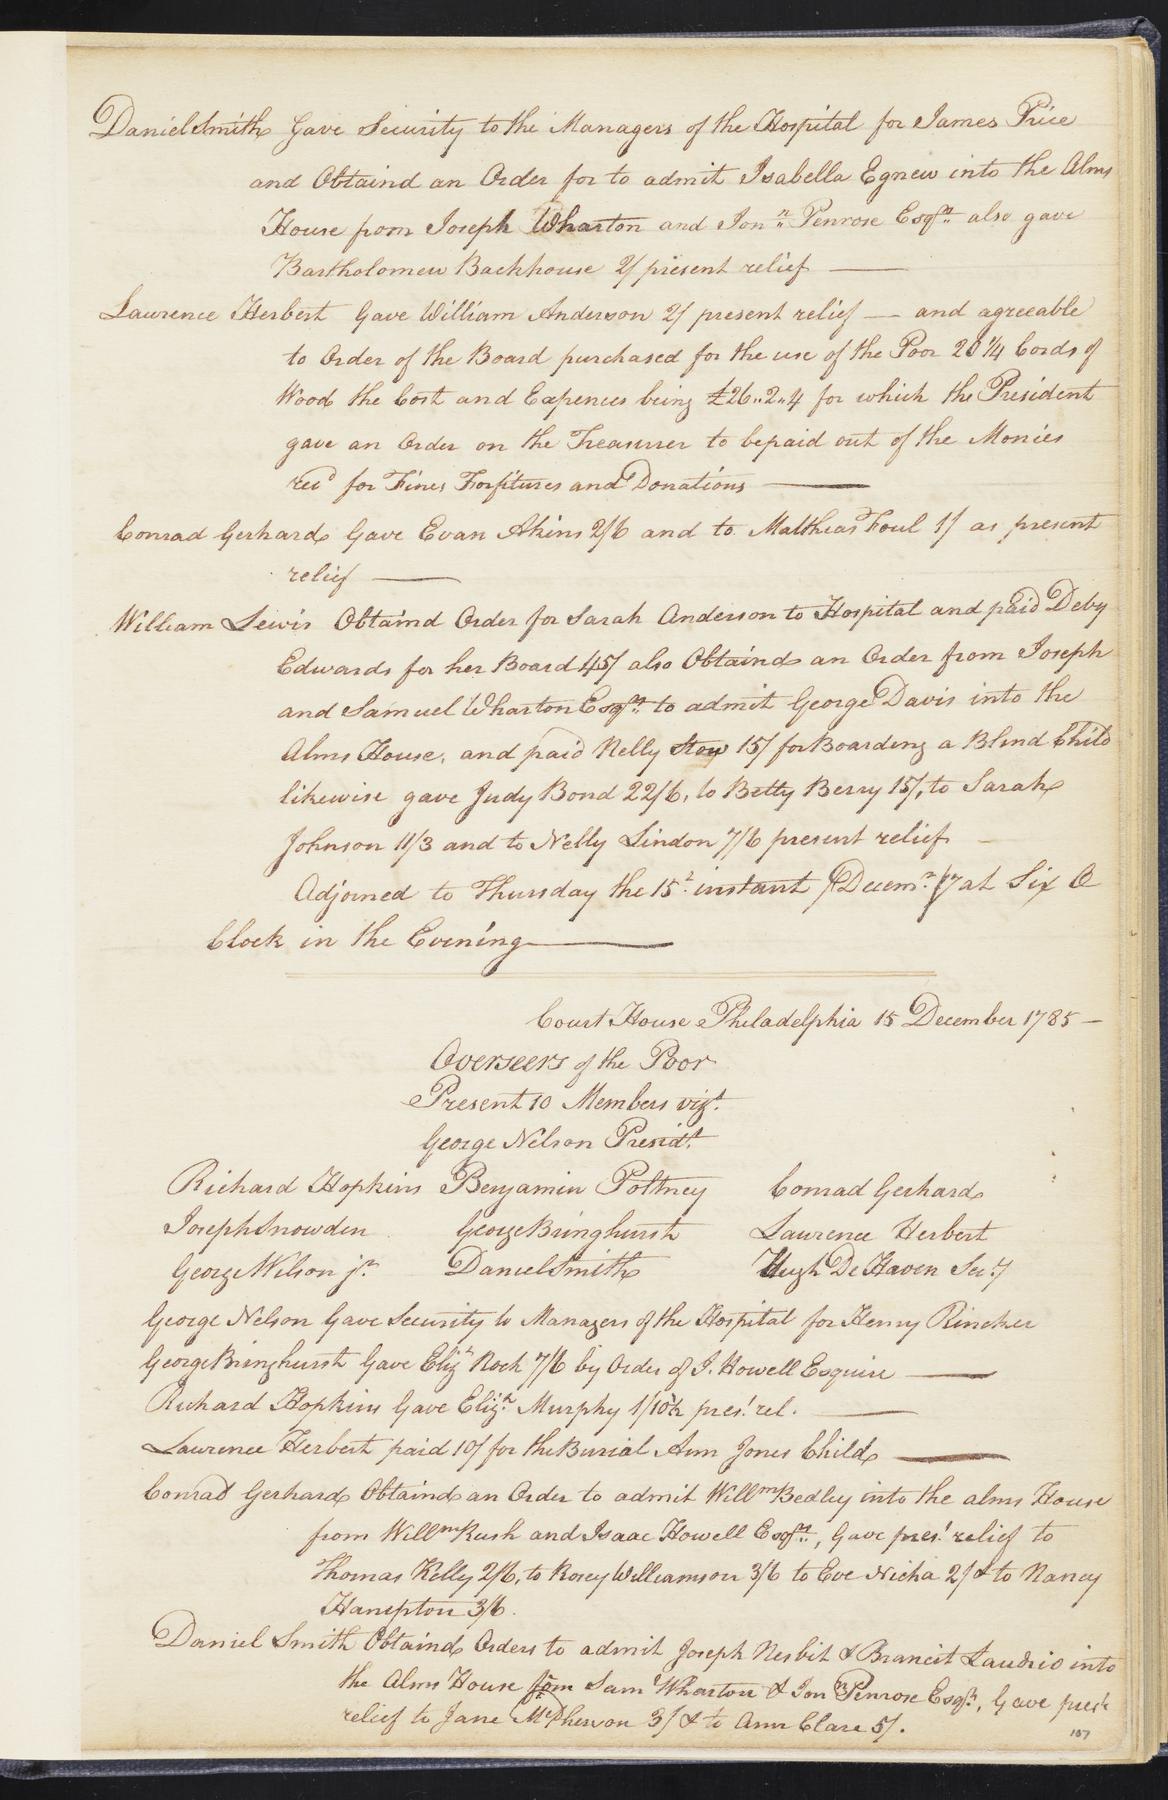 Daniel Smith Gave Security to the Managers of the Hospital for James Price
and Obtaind an Order for to admit Isabella Egnew into the Alms
House from Joseph Wharton and Jonn. Penrose Esqrs. also gave
Bartholomew Backhouse 2/ present relief —
Lawrence Herbert Gave William Anderson 2/ present relief — and agreeable
to Order of the Board purchased for the use of the Poor 20 1/4 Cords of
Wood the Cost and Expences being £26..2..4 for which the President
gave an Order on the Treasurer to be paid out of the Monies
recd for Fines Forfitures and Donations —
Conrad Gerhard Gave Evan Akins 2/6 and to Matthias Foul 1/ as present
relief —
William Lewis Obtaind Order for Sarah Anderson to Hospital and paid Deby
Edwards for her Board 45/ also Obtaind an Order from Joseph
and Samuel Wharton Esqrs. to admit George Davis into the
Alms House, and paid Nelly Stow 15/ for Boarding a Blind Child
likewise gave Judy Bond 22/6, to Betty Berry 15/, to Sarah
Johnson 11/3 and to Nelly Lindon 7/6 present relief —
Adjoined to Thursday the 15t. instant (Decemr.) at Six O
Clock in the Evening —
Court House Philadelphia 15 December 1785 —
Overseers of the Poor
Present 10 Members vizt.
George Nelson Presidt.
Richard Hopkins Benjamin Poltney Conrad Gerhard
Joseph Snowden George Bringhurst Lawrence Herbert
George Wilson jr. Daniel Smith Hugh De Haven Secy
George Nelson Gave Security to Managers of the Hospital for Henry Rincker
George Bringhurst Gave Eliza Rock 7/6 by Order of J. Howell Esquire —
Richard Hopkins Gave Eliza. Murphy 1/10 1/2 pres. rel. —
Lawrence Herbert paid 10/ for the Burial Ann Jones Child —
Conrad Gerhard Obtaind an Order to admit Willm Bedley into the alms House
from Willm Rush and Isaac Howell Esqrs., Gave pres. relief to
Thomas Kelly 2/6, to Rosey Williamson 3/6 to Eve Nicha 2/ & to Nancy
Hampton 3/6.
Daniel Smith Obtaind Orders to admit Joseph Nesbit & into
the Alms House from Saml Wharton & Jonn Penrose Esqrs., Gave prest
relief to Jane McPherson 3/ & to Ann Clare 5/.
107